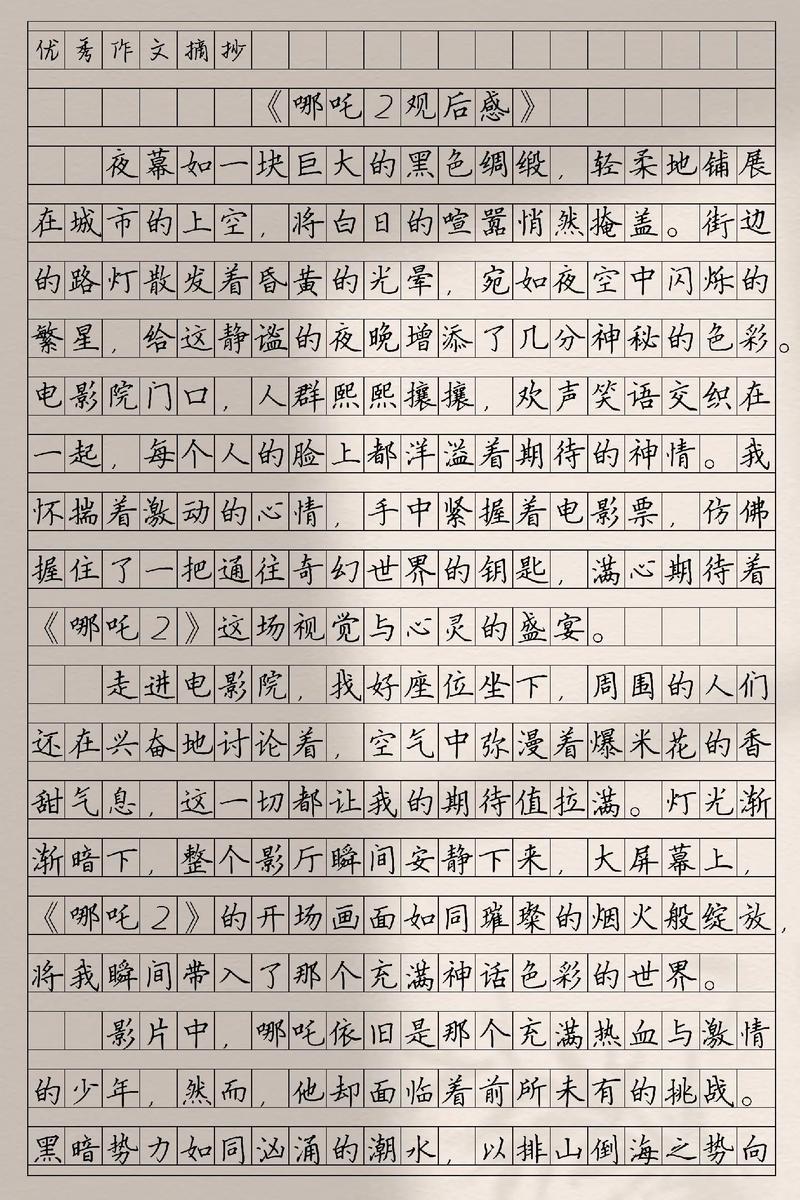 优秀作文摘抄
《哪吒2观后感》
夜幕如一块巨大的黑色绸缎，轻柔地铺展
在城市的上空，将白日的喧嚣悄然掩盖。街边
的路灯散发着昏黄的光晕，宛如夜空中闪烁的
繁星，给这静谧的夜晚增添了几分神秘的色彩。
电影院门口，人群熙熙攘攘，欢声笑语交织在
一起，每个人的脸上都洋溢着期待的神情。我
怀揣着激动的心情，手中紧握着电影票，仿佛
握住了一把通往奇幻世界的钥匙，满心期待着
《哪吒2》这场视觉与心灵的盛宴。
走进电影院，找好座位坐下，周围的人们
还在兴奋地讨论着，空气中弥漫着爆米花的香
甜气息，这一切都让我的期待值拉满。灯光渐
渐暗下，整个影厅瞬间安静下来，大屏幕上，
《哪吒2》的开场画面如同璀璨的烟火般绽放，
将我瞬间带入了那个充满神话色彩的世界。
影片中，哪吒依旧是那个充满热血与激情
的少年，然而，他却面临着前所未有的挑战。
黑暗势力如同汹涌的潮水，以排山倒海之势向